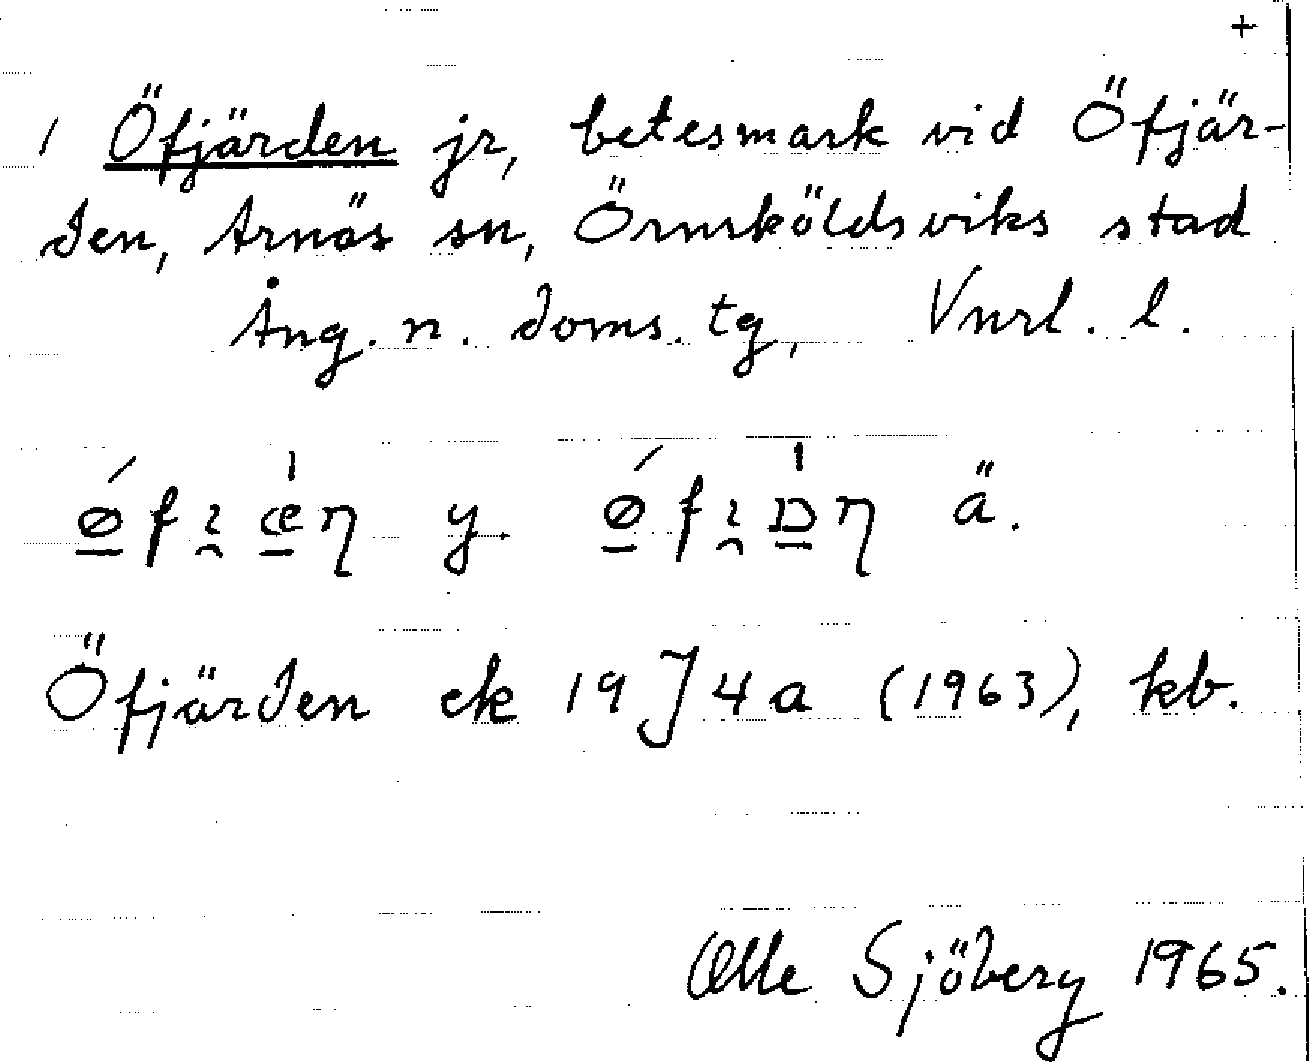 +
1 Öfjärden jr, betesmark vid Öfjär-
den, Arnäs sn, Örnsköldsviks stad
Ång. n. doms. tg, Vnrl. l.
y. ä.
Öfjärden ek 19 J 4 a (1963), kb.
Olle Sjöberg 1965.